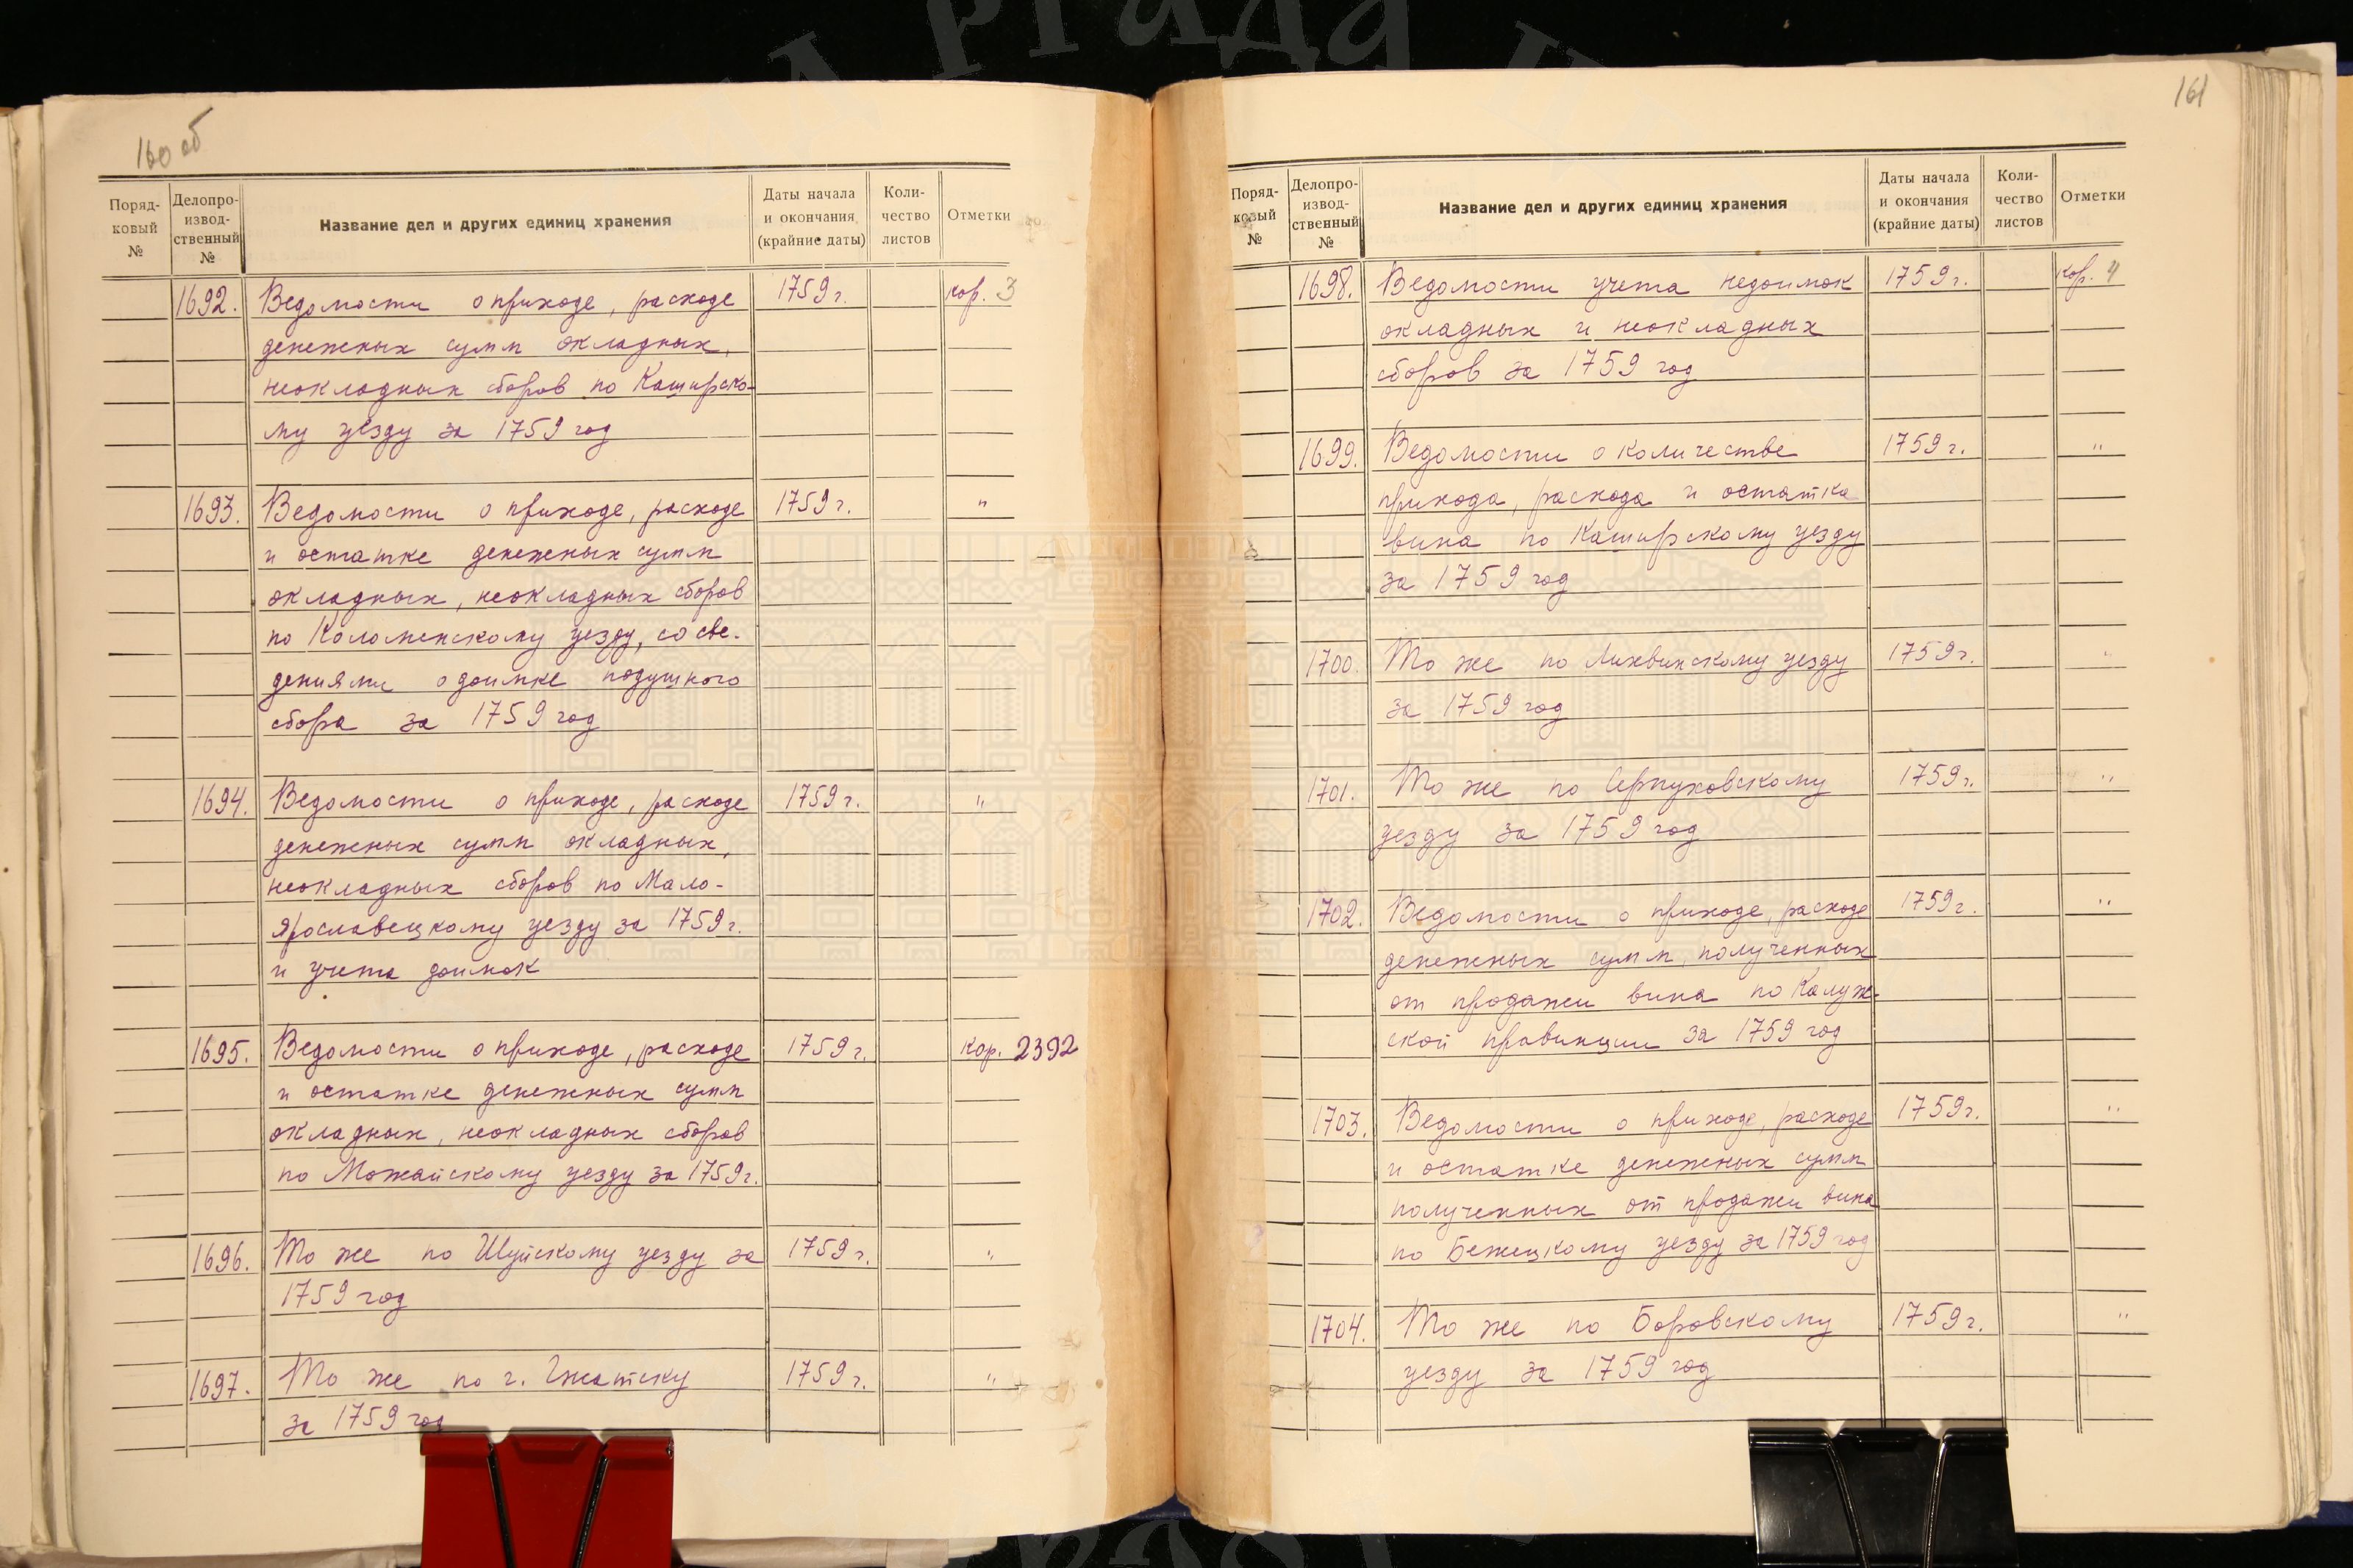 160 об
Поряд-
ковый
№
Делопро-
извод-
ственный
№
Название дел и других единиц хранения
Даты начала
и окончания
(крайние даты)
Коли-
чество
листов
Отметки
1692. Ведомости о приходе, расходе 1759 г. кор. 3
денежных сумм окладных,
неокладных сборов по Каширско-
му уезду за 1759 год
1693. Ведомости о приходе, расходе 1759 г. "
и остатке денежных сумм
окладных, неокладных сборов
по Коломенскому уезду, со све-
дениями о доимке подушного
сбора за 1759 год
1694. Ведомости о приходе, расходе 1759 г. "
денежных сумм окладных,
неокладных сборов по Мало-
ярославецкому уезду за 1759 г.
и учета доимок
1695. Ведомости о приходе, расходе 1759 г. кор. 2392
и остатке денежных сумм
окладных, неокладных сборов
по Можайскому уезду за 1759 г.
1696. То же по Шуйскому уезду за 1759 г. "
1759 год
1697. То же по г. Гжатску 1759 г. "
за 1759 год
161
Поряд-
ковый
№
Делопро-
извод-
ственный
№
Название дел и других единиц хранения
Даты начала
и окончания
(крайние даты)
Коли-
чество
листов
Отметки
1698. Ведомости учета недоимок 1759 г. кор. 4
окладных и неокладных
сборов за 1759 год
1699. Ведомости о количестве 1759 г. "
прихода, расхода и остатка
вина по Каширскому уезду
за 1759 год
1700. То же по Лихвинскому уезду 1759 г. "
за 1759 год
1701. То же по Серпуховскому 1759 г. "
уезду за 1759 год
1702. Ведомости о приходе, расходе 1759 г. "
денежных сумм, полученных
от продажи вина по Калуж-
ской провинции за 1759 год
1703. Ведомости о приходе, расходе 1759 г. "
и остатке денежных сумм
полученных от продажи вина
по Бежецкому уезду за 1759 год
1704. То же по Боровскому 1759 г. "
уезду за 1759 год